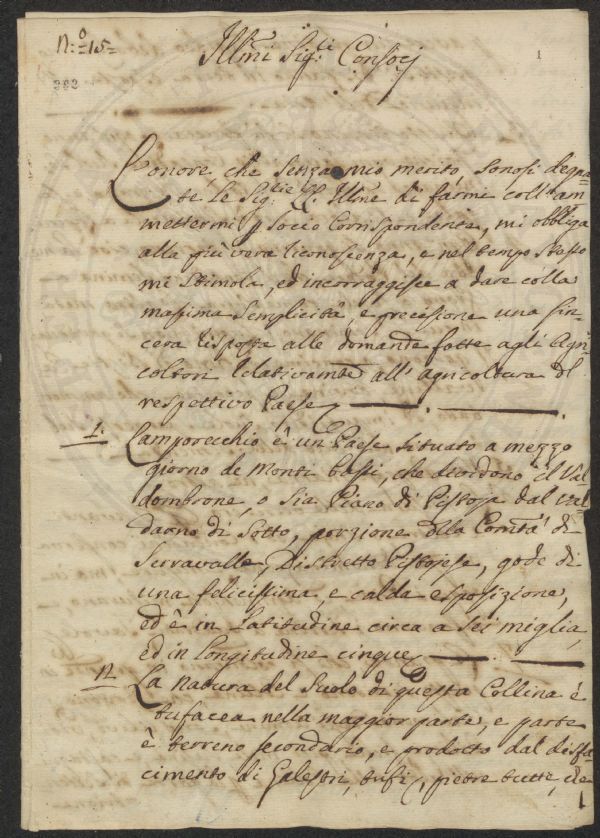 N:º 15=
1
Ill̃mi Sig:ri Consocj
382
L'onore, che senza mio merito, sonosi degna-
te le Sig:rie LL. Ill̃me di farmi coll'am
mettermi p Socio Corrispondente, mi obbliga
alla più vera riconoscenza, e nel tempo stesso
mi stimola, ed incorraggisce a dare colla
massima semplicità, e precisione una sin-
cera risposta alle domande fatte agli Agri-
coltori relativamte all'agricoltura del
respettivo Paese
1. Lamporecchio è un Paese situato a mezzo
giorno de Monti bassi, che dividono il Val
dombrone, o sia Piano di Pistoja dal Val-
darno di Sotto, porzione della Comtà di
Serravalle, Distretto Pistojese, gode di
una felicissima, e calda esposizione,
ed è in Latitudine circa a sei miglia,
ed in Longitudine cinque
2. La natura del Suolo di questa Collina è
tufacea nella maggior parte, e parte
è terreno secondario, e prodotto dal disfa-
cimento di Galestri, tufi, pietre tutte, che